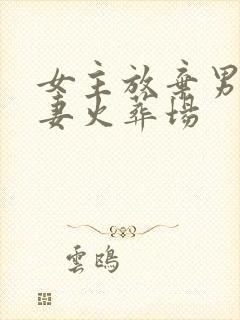 女主放棄男
妻火葬場
雲鴎